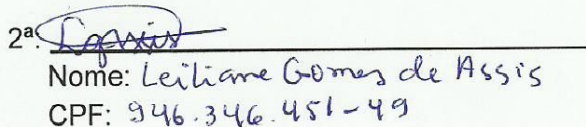 2ª.
Nome: Leiliane Gomes de Assis
CPF: 946.346.451-49